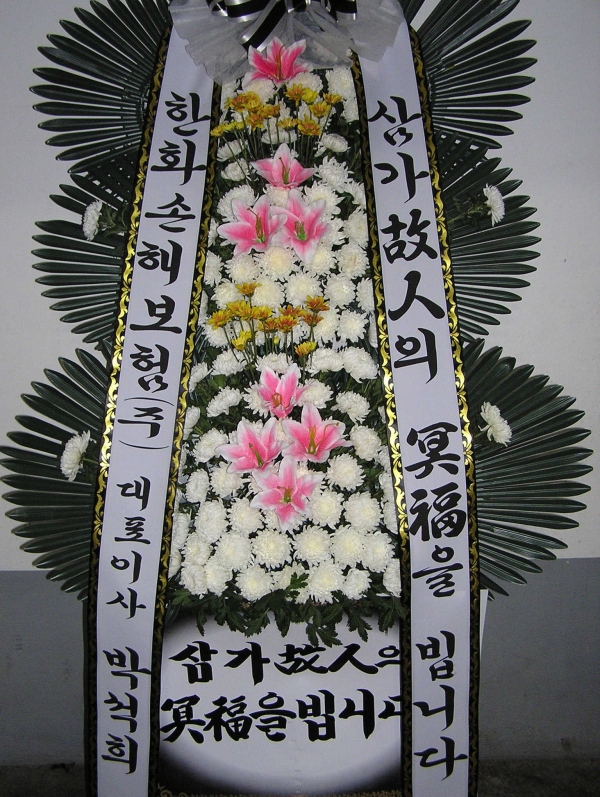 삼가 故人의 冥福을 빕니다
한화손해보험(주) 대표이사 박석희
삼가 故人의
冥福을 빕니다